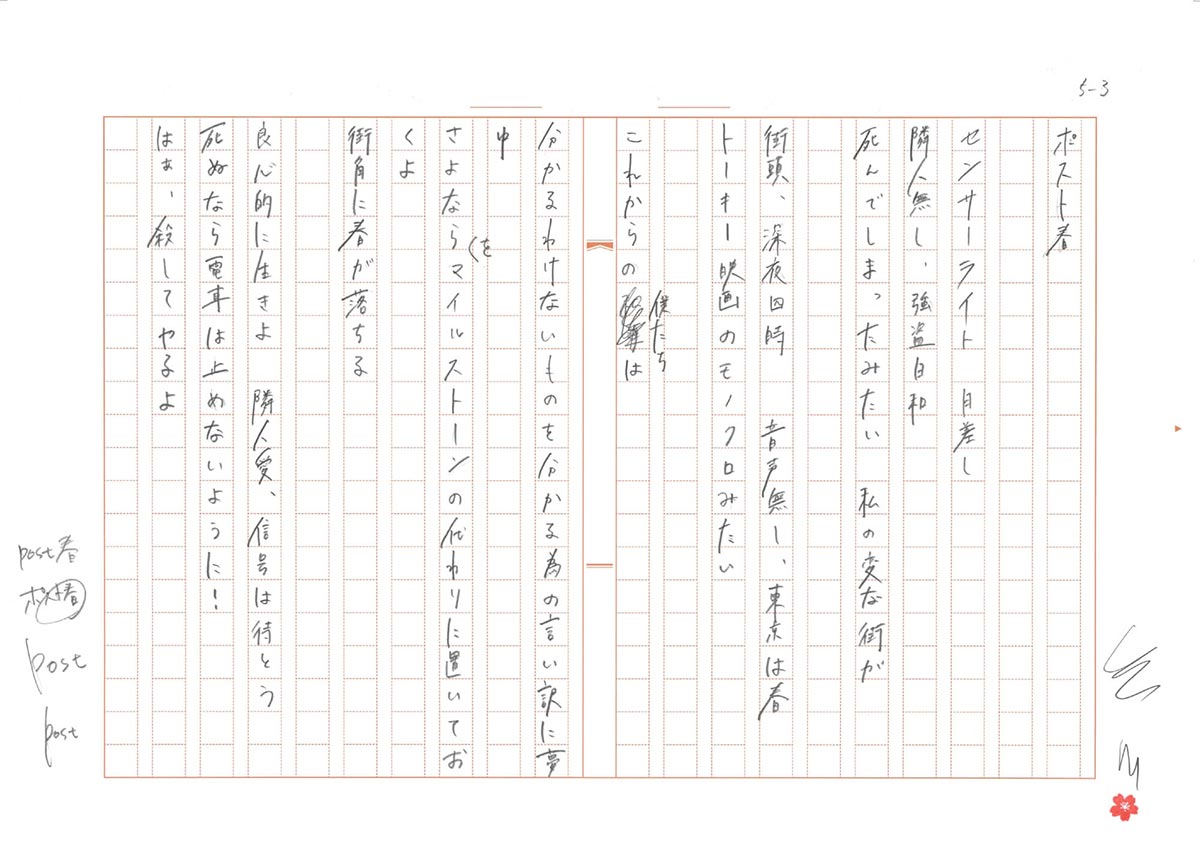 5-3
ポスト春
センサーライト 目差し
隣人無し、強盗日和
死んでしまったみたい 私の変な街が
街頭、深夜四時 音声無し、東京は春
トーキー映画のモノクロみたい
これからの僕たちは
分かるわけないものを分かる為の言い訳に夢
中
さよならをマイルストーンの代わりに置いてお
くよ
街角に春が落ちる
良心的に生きよ 隣人愛、信号は待とう
死ぬなら電車は止めないように!
はぁ、殺してやるよ
post春
post
post